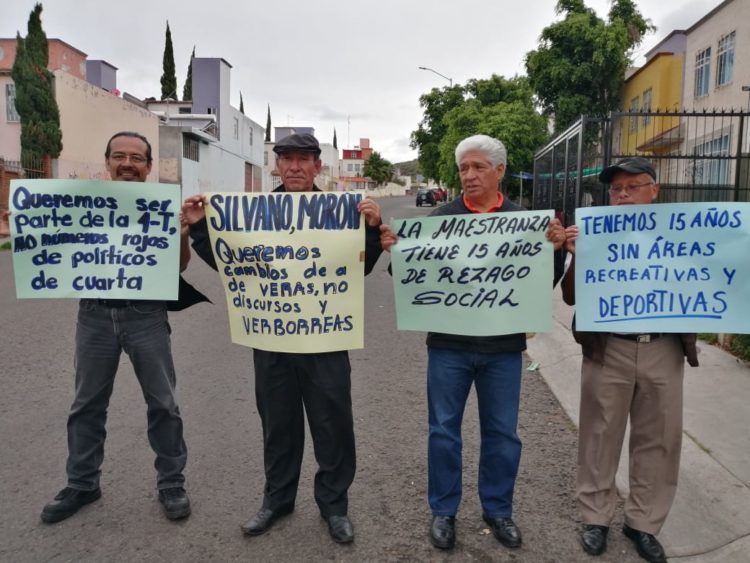 Queremos ser
Parte de la 4-T,
no números rojos
de políticos
de cuarta
SILVANO, MORÓN
Queremos
cambios de a
de VERAS, no
discursos y
VERBORREAS
LA MAESTRANZA
TIENE 15 AÑOS
DE REZAGO
SOCIAL
TENEMOS 15 AÑOS
SIN ÁREAS
RECREATIVAS Y
DEPORTIVAS